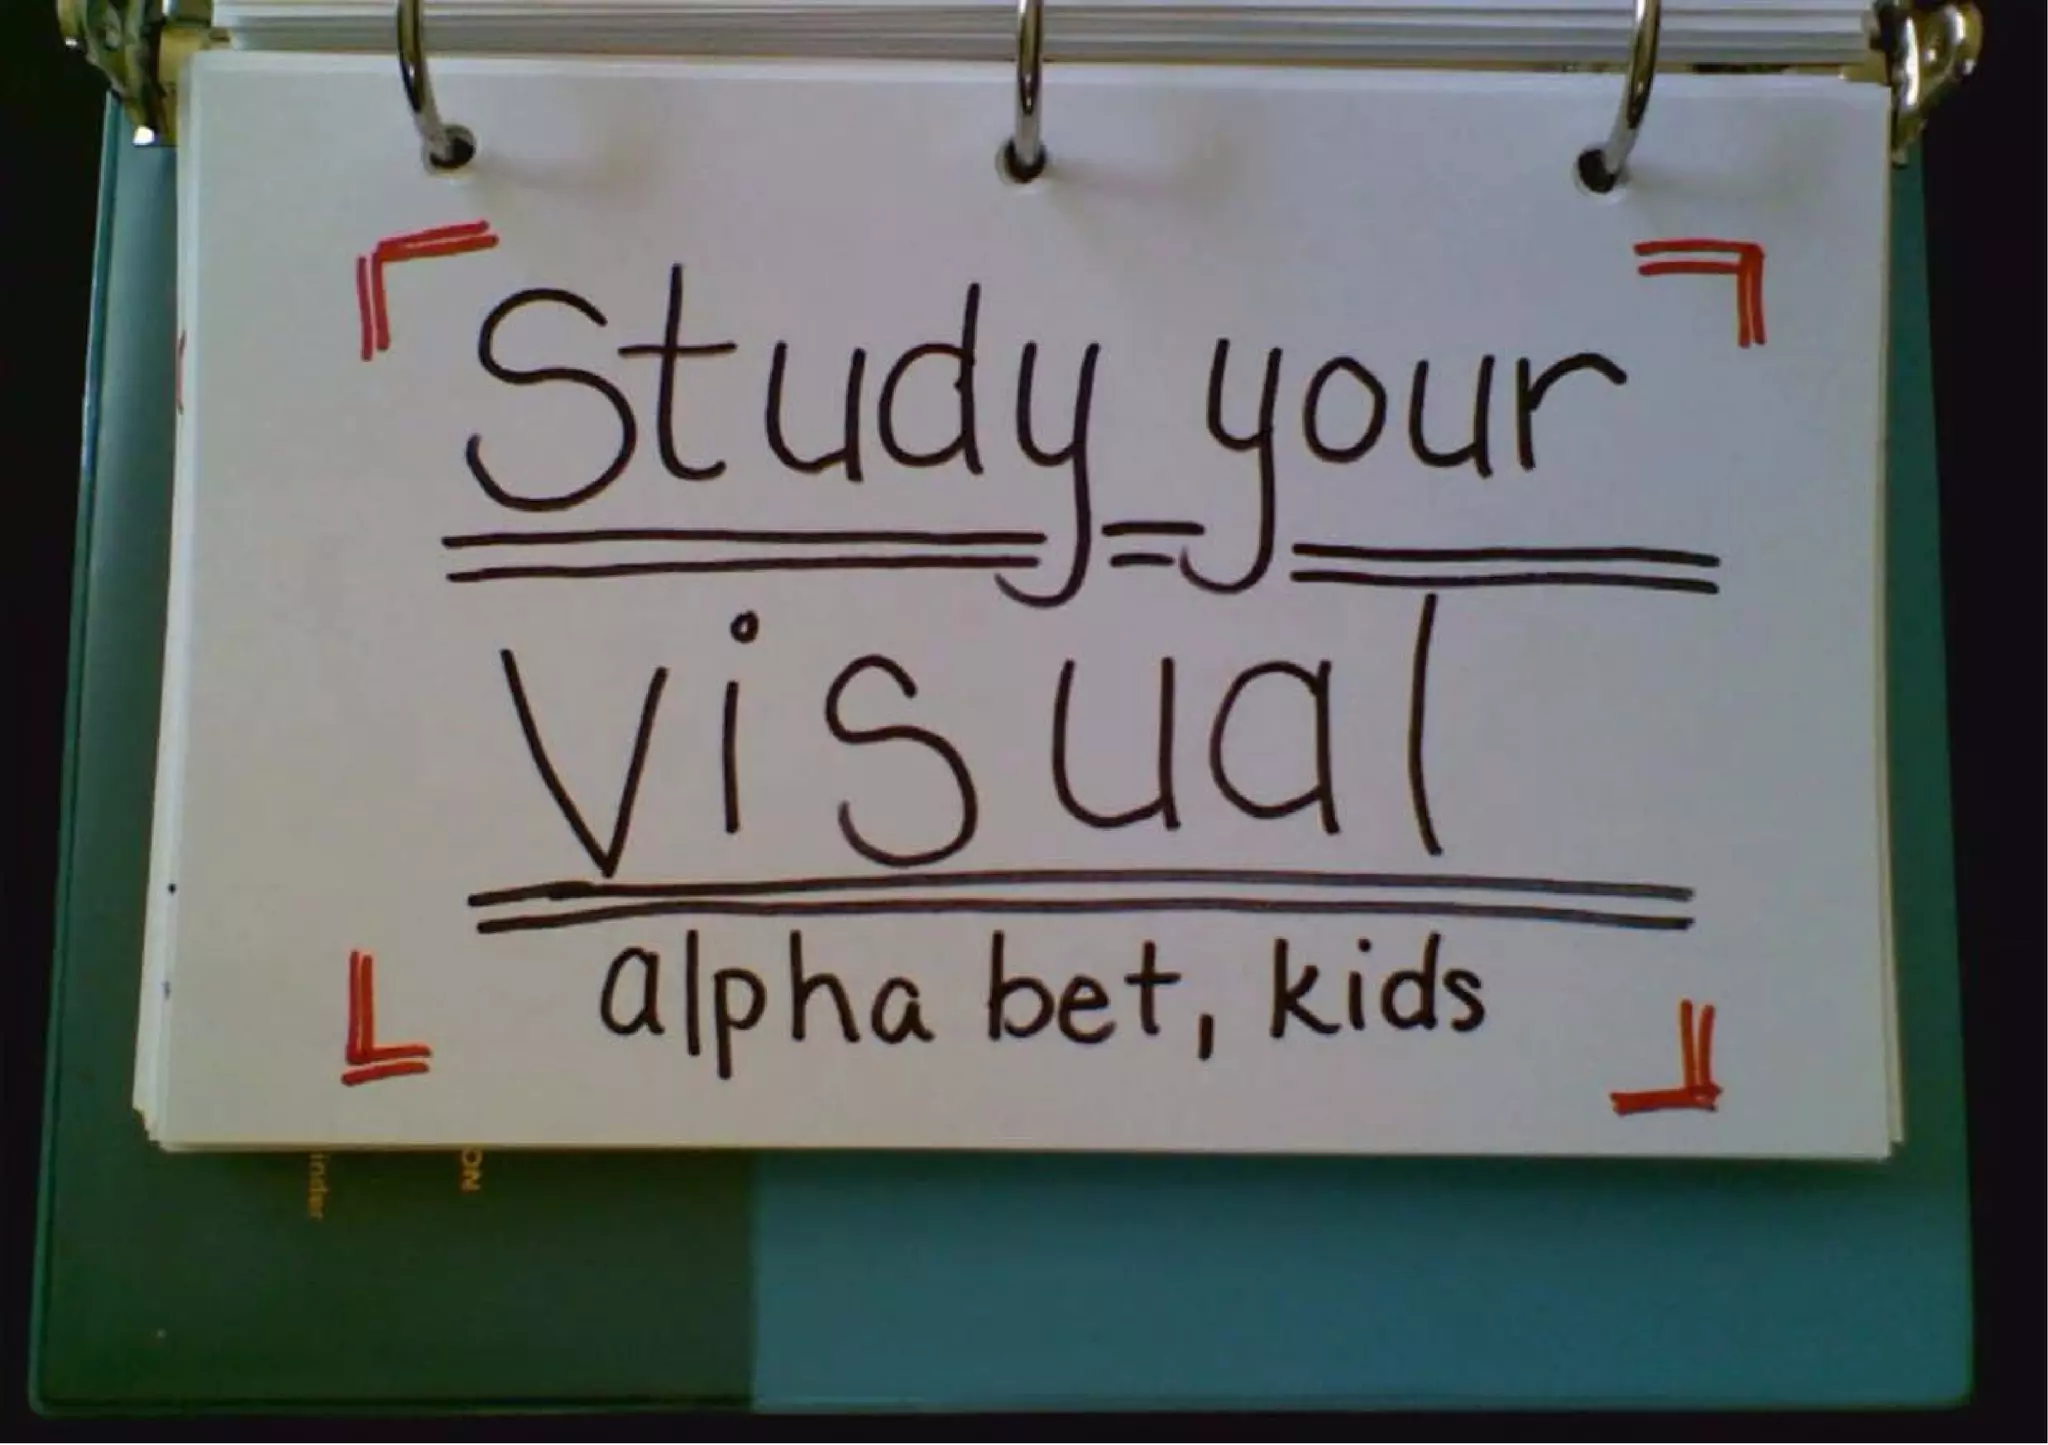 Study your
visual
alphabet, kids
ON
inder